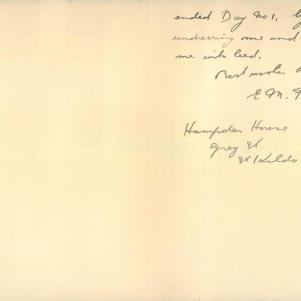 ended Day No 1.
undressing me and
me into bed.
Best wishes
E M.
Hampden House
Grey St
St Kilda